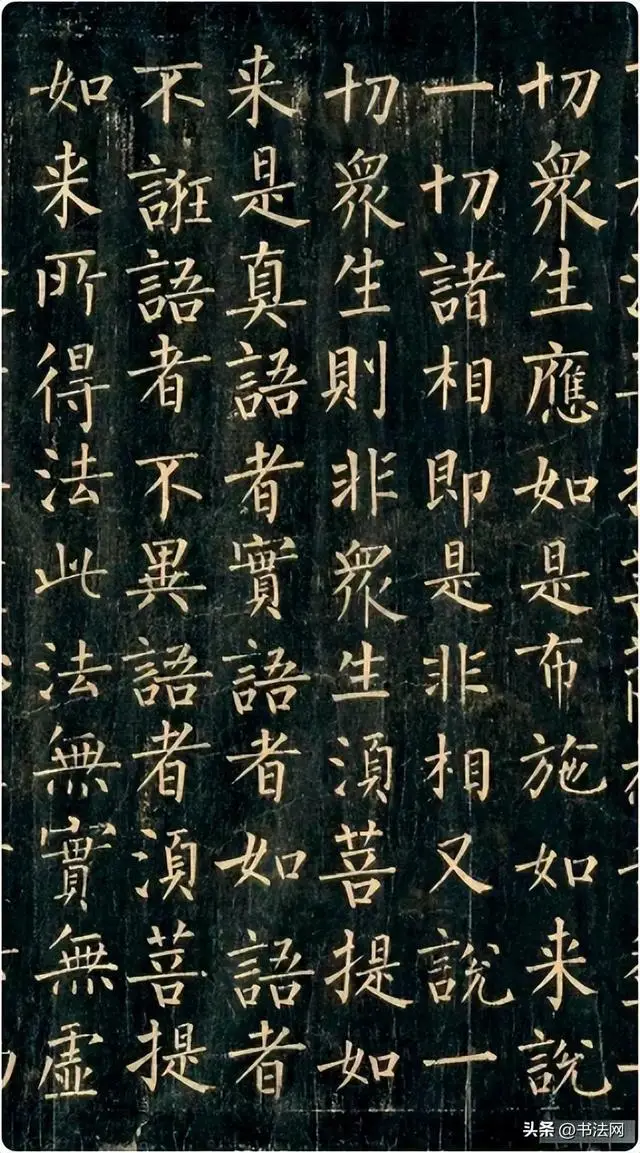 切眾生應如是布施如来說
一切諸相即是非相又說一
切眾生則非眾生湏菩提如
来是真語者實語者如語者
不誑語者不異語者湏菩提
如来所得法此法無實無虛
头条 @书法网